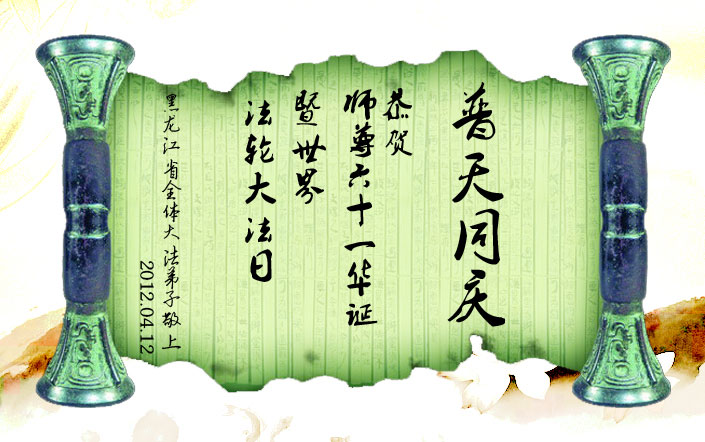 普天同庆
恭贺
师尊六十一华诞
暨世界
法轮大法日
黑龙江省全体大法弟子敬上
2012.04.12